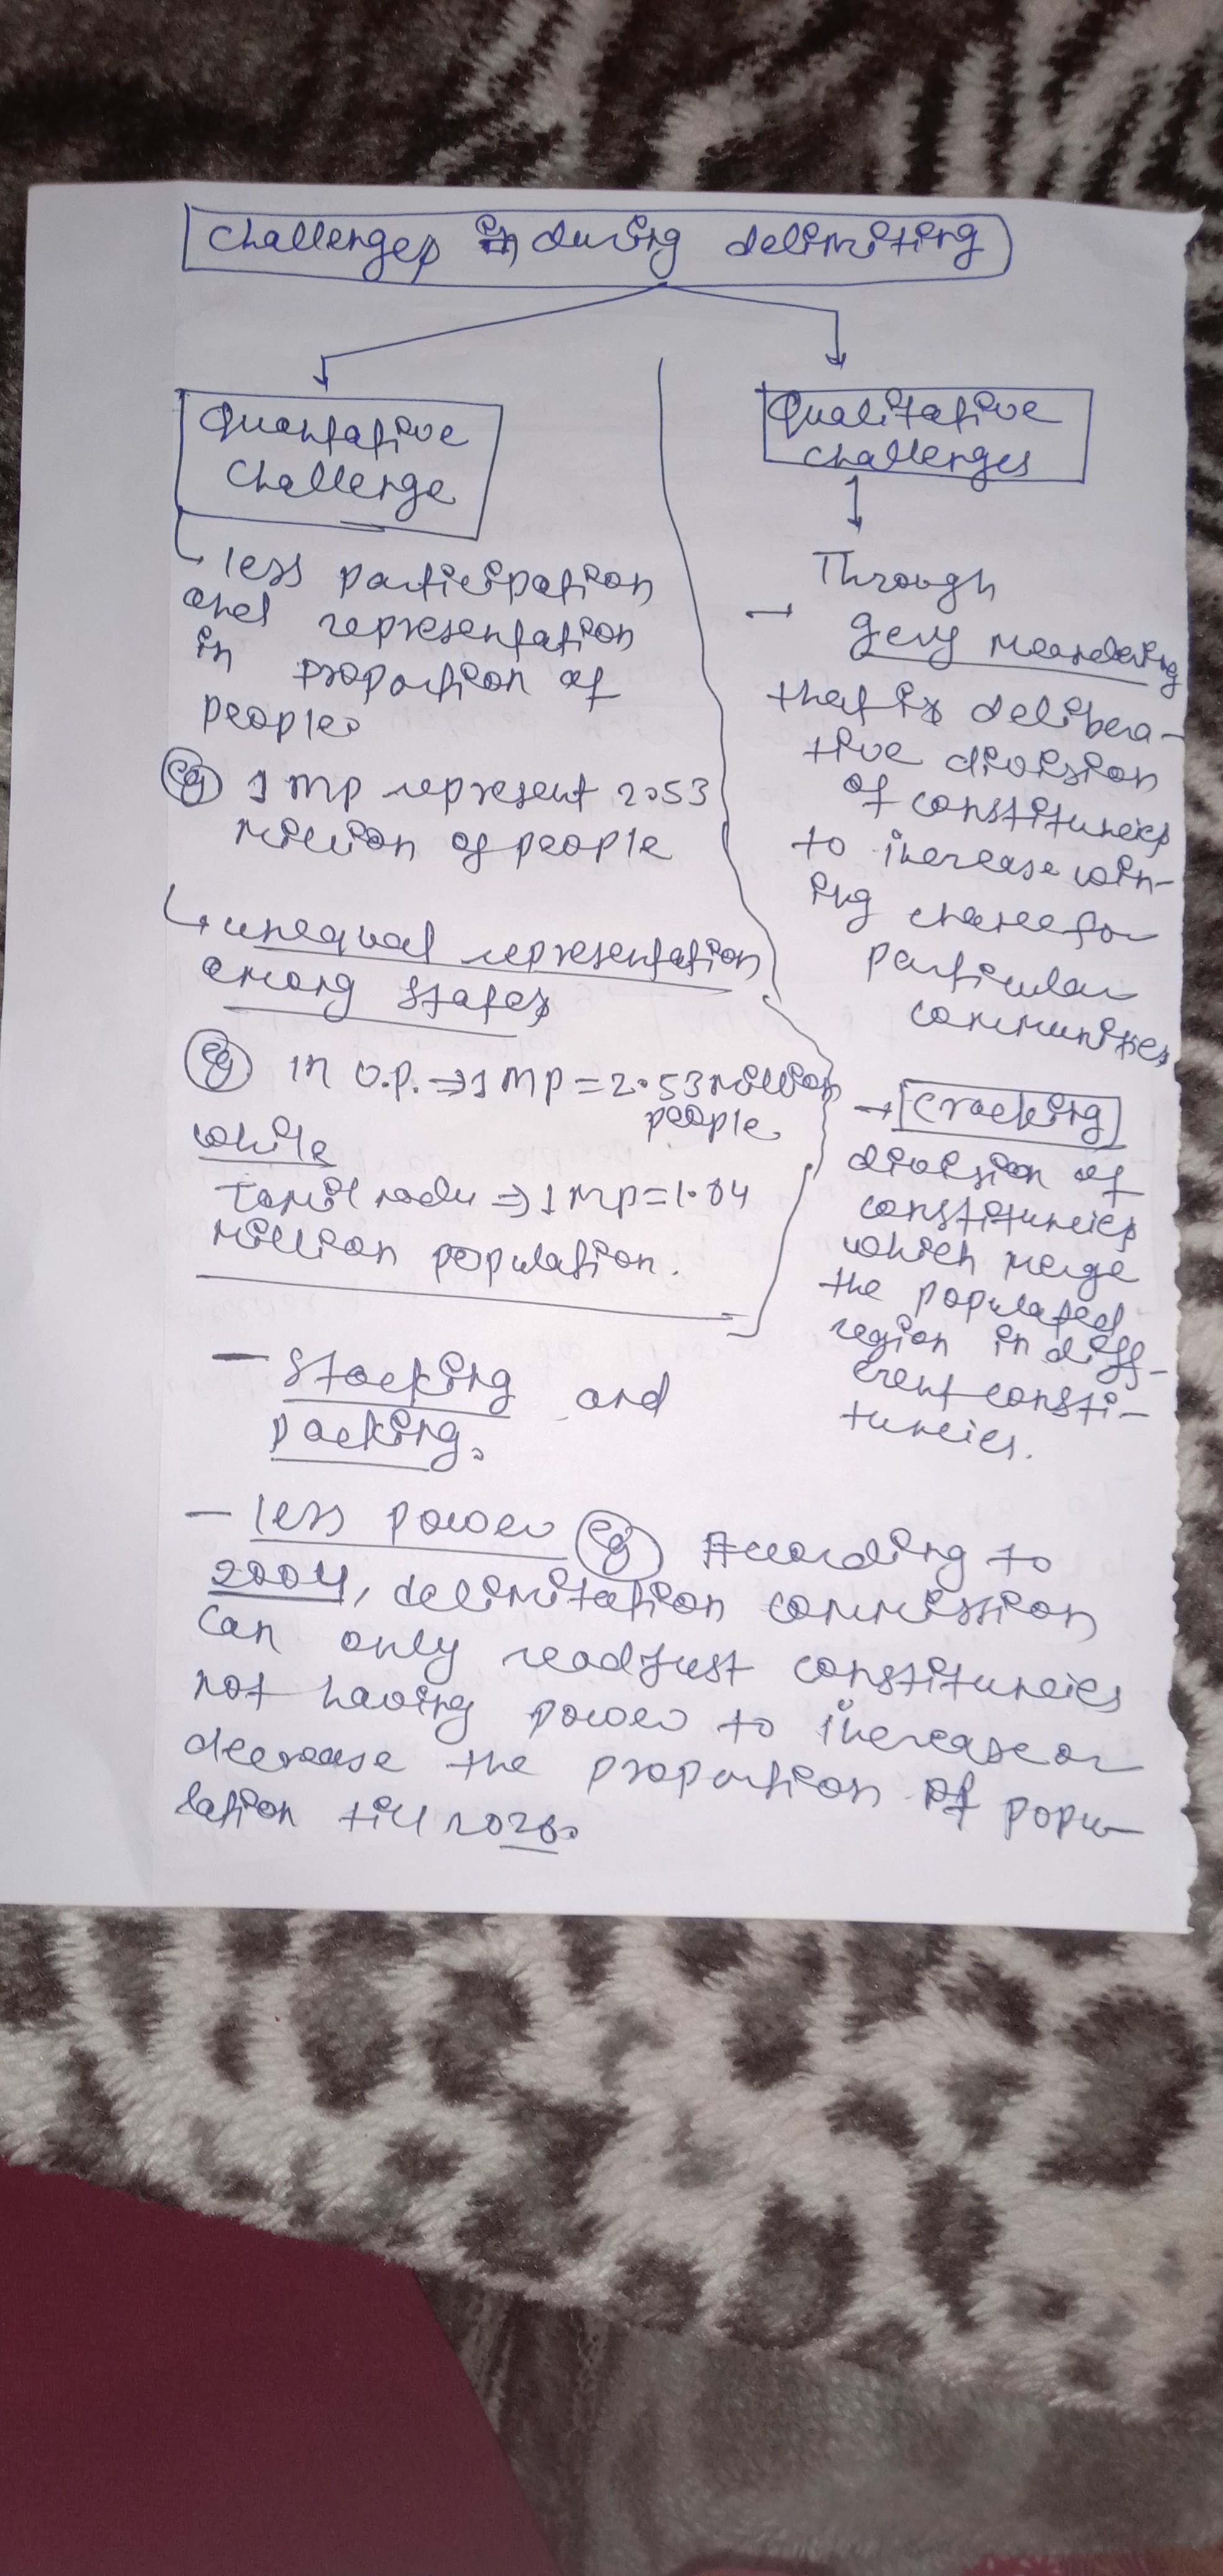 challenges in during delimiting
Quantative
challenge
less participation
and representation
in proportion of
people.
eg 1 MP represent 2.53
million of people
unequal representation
among states
eg in U.P. ⇒ 1 MP = 2.53 million
people
while
Tamil nadu ⇒ 1 MP = 1.84
million population.
Qualitative
challenges
Through
→ gerry meandering
that is delibera-
tive division
of constituncies
to increase win-
ing chance for
particular
communities
→ Cracking
division of
constituncies
which merge
the populated
region in diff-
erent consti-
tuncies.
— stacking and
packing.
— less power eg According to
2004, delimitation commission
can only readjust constituncies
not having power to increase or
decrease the proportion of popu-
lation till 2026.